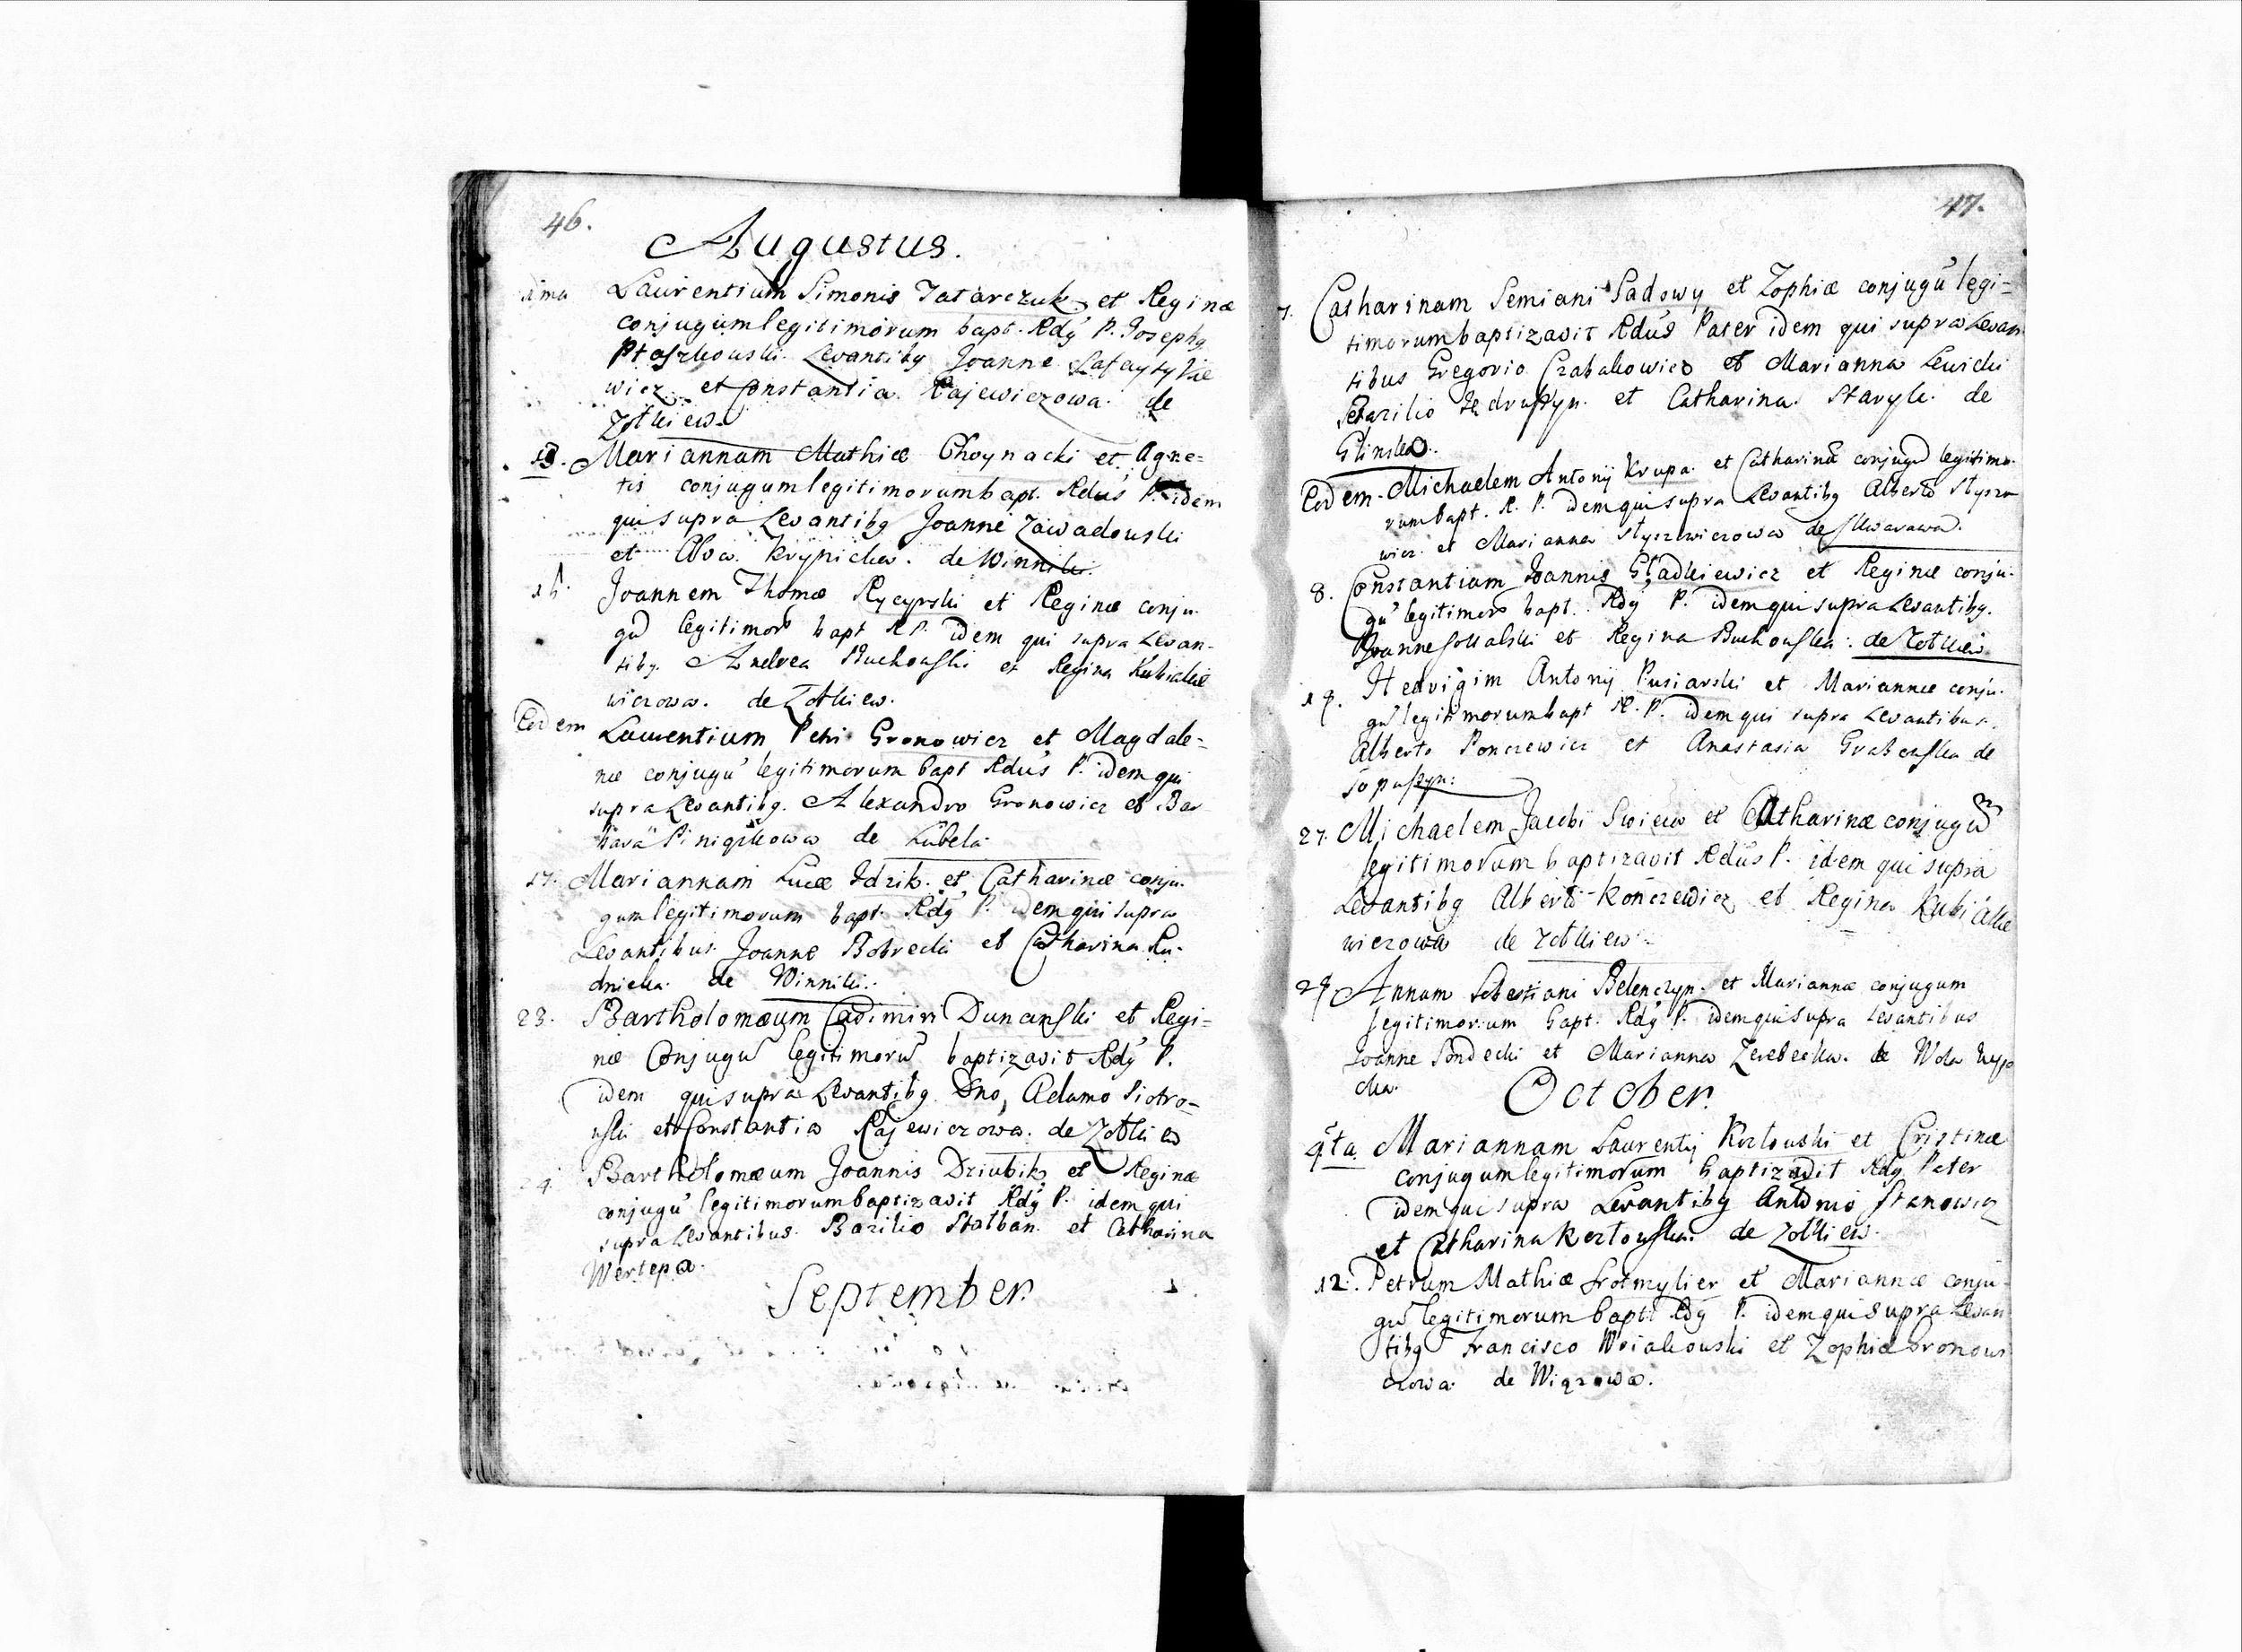 46.
Augustus.
ima Laurentium Simonis Tatarczuk et Reginæ
conjugum legitimorum bapt. Rdg P. Josephg
Ptaszkouski. Levantibg Joanne
wicz et Constantia Rajewiczowa. de
Zolkiew.
13. Mariannam Mathiæ Choynacki et Agne=
tis conjugum legitimorum bapt. Rdus P. idem
qui supra Levantibg Joanne Zawadouski
et Krypicka. de Winniki.
15. Joannem Thomæ Rycyrski et Reginæ conju-
gũ legitimorũ bapt R P. idem qui supra Levan-
tibg. Andrea Buchouski et Regina Kubialkie
wiczowa. de Zolkiew.
Eodem Laurentium Petri Gronowicz et Magdale=
næ conjugũ legitimorum bapt Rdus P. idem qui
supra Levantibg. Alexandro Gronowicz et Bar
bara de Lubela
17. Mariannam Lucæ Idzik. et Catharinæ conju-
gum legitimorum bapt. Rdg P. idem qui supra
Levantibus Joanne Bobrecki et Catharina Ru-
dnicka. de Winniki.
23. Bartholomæum Casimiri Dunanski et Regi=
næ Conjugũ legitimorũ baptizavit Rdg P.
idem qui supra Levantibg Dno, Adamo Piotro=
uski et Constantia Rajewiczowa. de Zolkiew
24. Bartholomæum Joannis Dziubik et Reginæ
conjugũ legitimorum baptizavit Rdg P. idem qui
supra Levantibus Bazilio Stolban. et Catharina
Wertepa.
September.
47.
7. Catharinam Semiani Sadowy et Zophiæ conjugũ legi=
timorum baptizavit Rdus Pater idem qui supra Levan
tibus Gregorio Czabakowicz et Marianna Lewicki
Bazilio et Catharina. Staryk. de
Glinsko.
Eodem. Michaelem Antonij Krupa. et Catharinæ conjugũ legitimo-
rum bapt. R. P. idem qui supra Levantibg Alberto Styszo
wicz et Marianna Styszkwiczowa de Skwarawa.
8. Constantiam Joannis Gladkiewicz et Reginæ conju-
gũ legitimorũ bapt. Rdg P. idem qui supra Levantibg.
Joanne Kowalski et Regina Buchouska. de Zolkiew
19. Hedvigim Antonij Pusiarski et Mariannæ conju-
gũ legitimorum bapt R. P. idem qui supra Levantibus.
Alberto Ponczewicz et Anastasia Grabouska de
Sopuszyn:
27. Michaelem Jacobi Swiera et Catharinæ conjugũ
legitimorum baptizavit Rdus P. idem qui supra
Levantibg Alberto Konczewicz et Regina Kubialkie
wiczowa de Zolkiew
29 Annam Sebestiani Belenczyn. et Mariannæ conjugum
legitimorum bapt. Rdg P. idem qui supra Levantibus
Joanne Sondecki et Marianna Zerebecka. de Wola Wyso
cka.
October.
4ta Mariannam Laurentij Kozlouski et Cristinæ
conjugum legitimorum baptizavit Rdg Pater
idem qui supra Levantibg Antonio Stanowicz
et Catharina Kozlouska. de Zolkiew.
12. Petrum Mathiæ Srotmylier et Mariannæ conju-
gũ legitimorum bapt. Rdg P. idem qui supra Levan
tibg Francisco Woiakouski et Zophia Gronowi
czowa de Wiązowa.